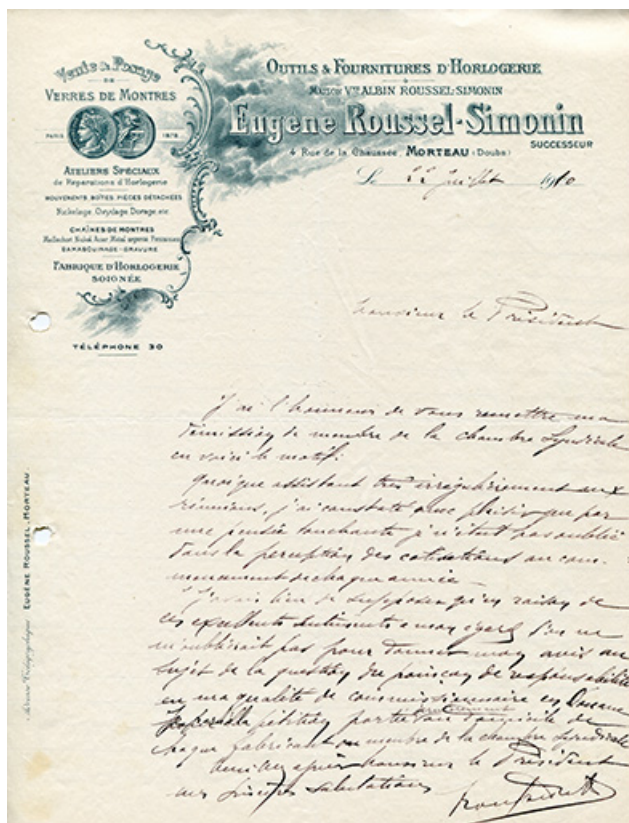 Vente & Posage
DE
VERRES DE MONTRES
PARIS 1878
ATELIERS SPÉCIAUX
de Réparations d'Horlogerie
MOUVEMENTS, BOÎTES, PIÈCES DÉTACHÉES
Nickelage, Oxydage, Dorage, etc.
CHAÎNES DE MONTRES
DAMASQUINAGE - GRAVURE
FABRIQUE D'HORLOGERIE
SOIGNÉE
TÉLÉPHONE 30
OUTILS & FOURNITURES D'HORLOGERIE
MAISON Vve ALBIN ROUSSEL-SIMONIN
Eugène Roussel-Simonin
SUCCESSEUR
4 Rue de la Chaussée, MORTEAU (Doubs)
Le 22 Juillet 1910
Monsieur le Président
J'ai l'honneur de vous remettre ma
démission de membre de la chambre syndicale
en voici le motif:
Quoique assistant très irrégulièrement aux
réunions, j'ai constaté avec plaisir que par
une pensée touchante je n'étais pas oublié
dans la perception des cotisations au com-
mencement de chaque année -
J'avais lieu de supposer qu'en raison de
ces excellents sentiments à mon égard l'on ne
m'oublierait pas pour donner mon avis au
sujet de la question du poinçon de responsabilité
en ma qualité de commissionnaire en Douane
pétition
chaque fabricant ou membre de la chambre syndicale
Monsieur le Président
mes sincères salutations
Adresse Télégraphique EUGÈNE ROUSSEL, MORTEAU.